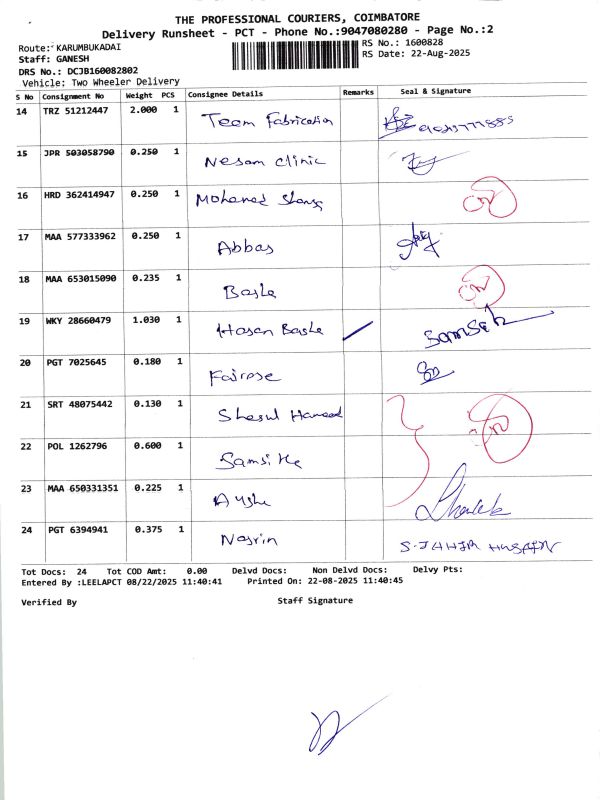 THE PROFESSIONAL COURIERS, COIMBATORE
Delivery Runsheet - PCT - Phone No.:9047080280 - Page No.:2
Route: KARUMBUKADAI
RS No.: 1600828
Staff: GANESH
RS Date: 22-Aug-2025
DRS No.: DCJB160082802
Vehicle: Two Wheeler Delivery
S No Consignment No Weight PCS Consignee Details Remarks Seal & Signature
14 TRZ 51212447 2.000 1 Teem Fabrication
15 JPR 503058790 0.250 1 Nesam clinic
16 HRD 362414947 0.250 1 Mohamed
17 MAA 577333962 0.250 1 Abbas
18 MAA 653015090 0.235 1 Bashe
19 WKY 28660479 1.030 1 Hasan Bashe
20 PGT 7025645 0.180 1 Fairose
21 SRT 48075442 0.130 1 Hameed
22 POL 1262796 0.600 1
23 MAA 650331351 0.225 1 Ayshe
24 PGT 6394941 0.375 1 Nasrin S. JAHIR HUSAIN
Tot Docs: 24 Tot COD Amt: 0.00 Delvd Docs: Non Delvd Docs: Delvy Pts:
Entered By :LEELAPCT 08/22/2025 11:40:41 Printed On: 22-08-2025 11:40:45
Verified By Staff Signature